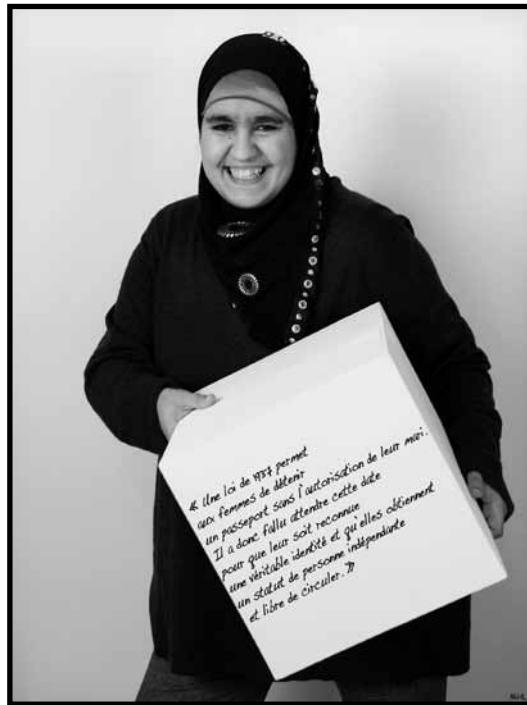 « Une loi de 1937 permet
aux femmes de détenir
un passeport sans l'autorisation de leur mari.
Il a donc fallu attendre cette date
pour que leur soit reconnue
une véritable identité et qu'elles obtiennent
un statut de personne indépendante
et libre de circuler. »